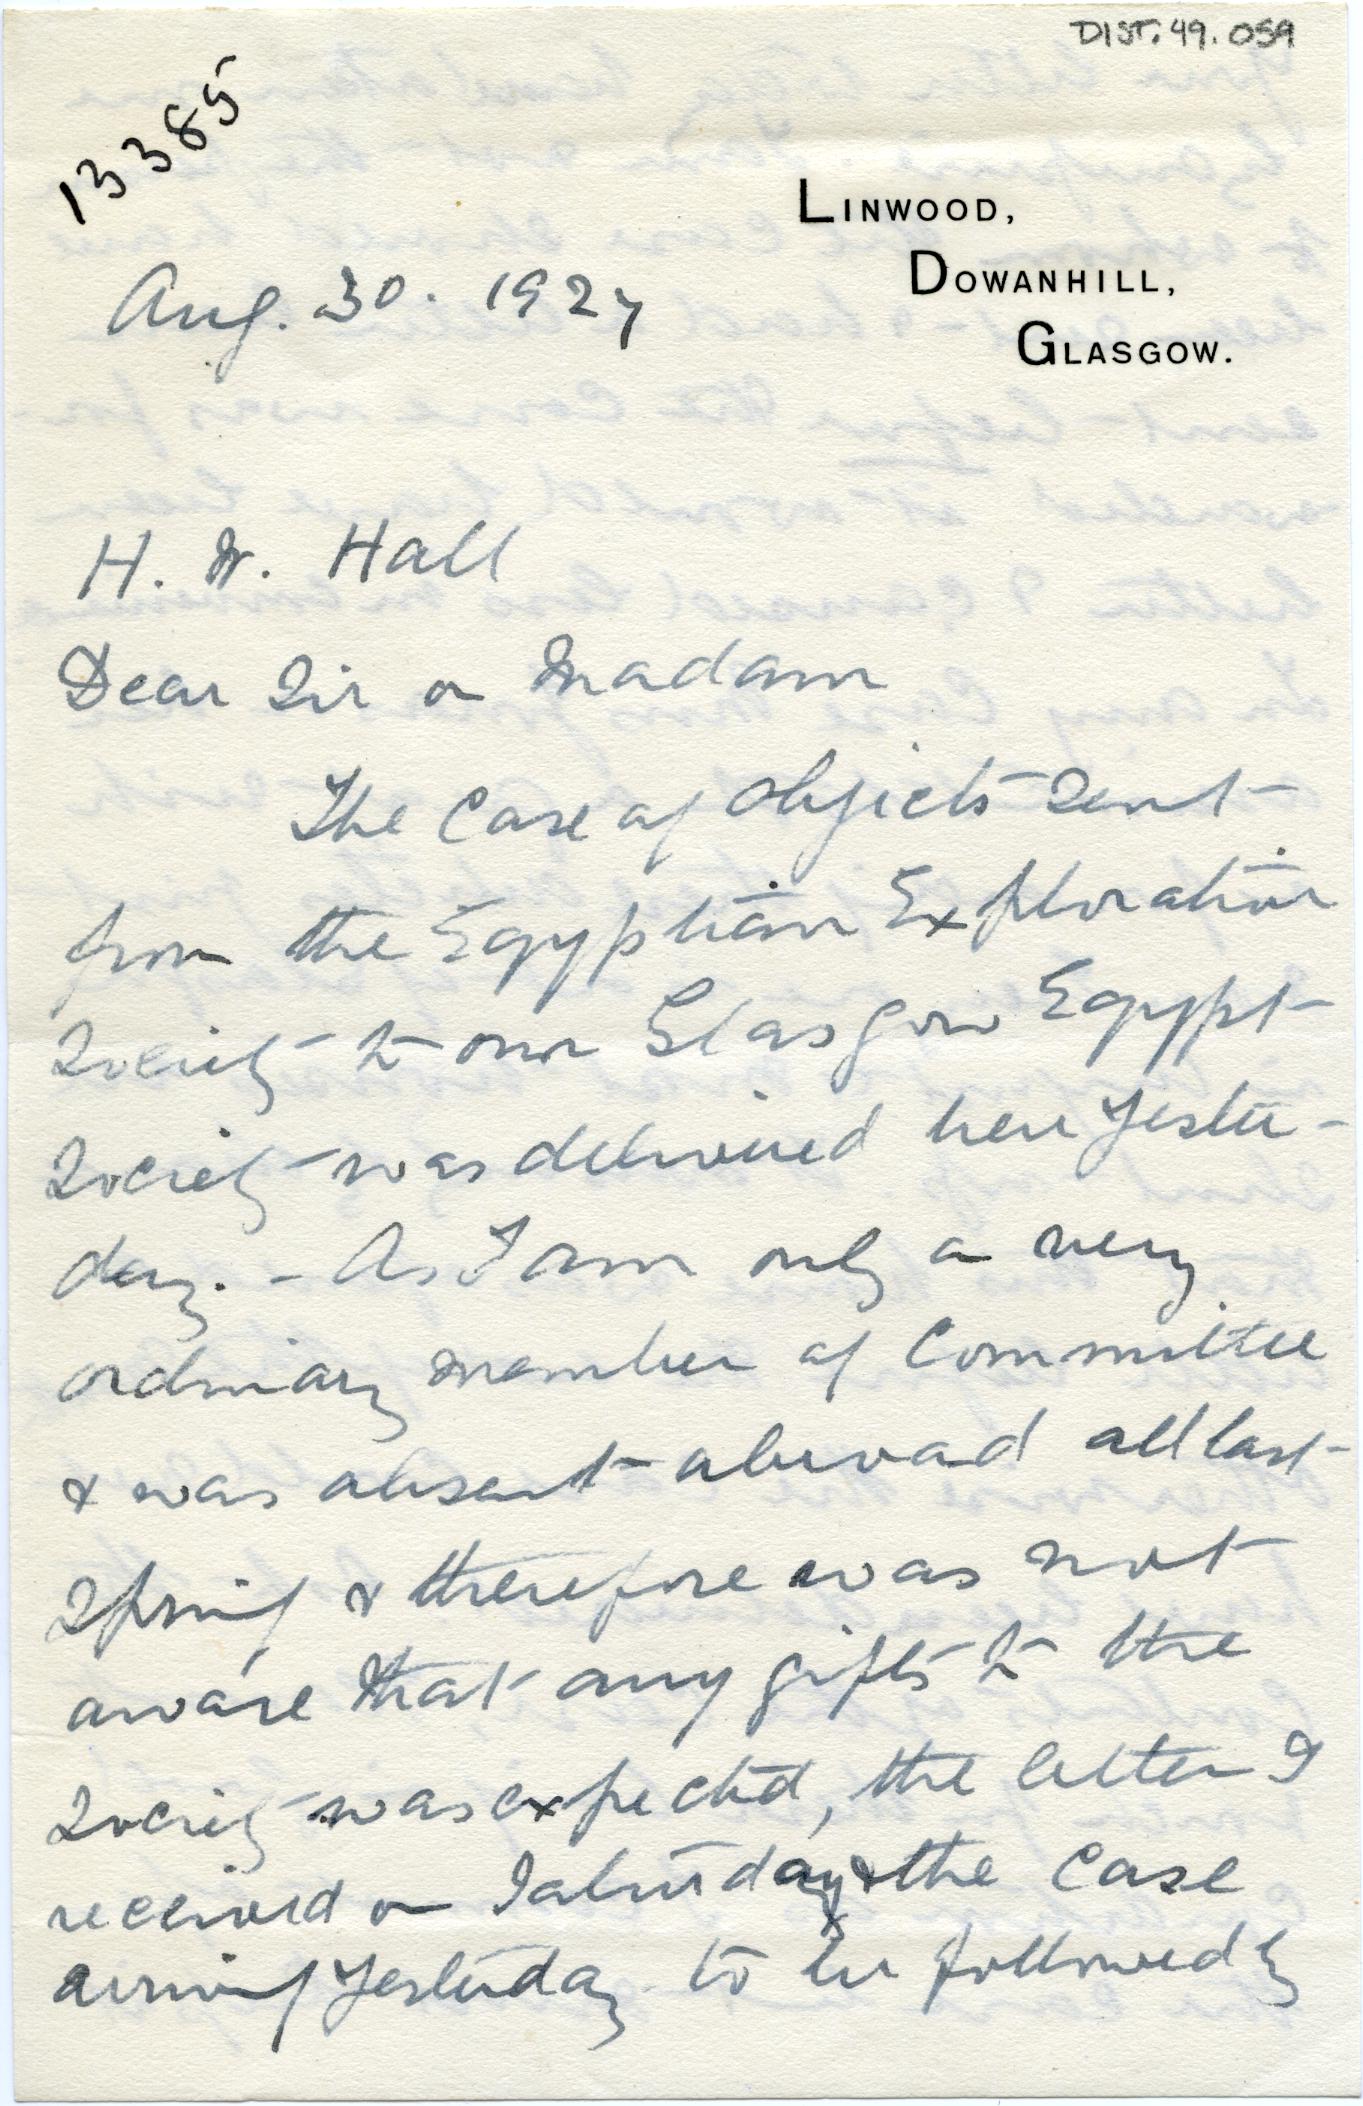 DIST. 49. 059
13385
LINWOOD,
DOWANHILL,
GLASGOW.
Aug. 30. 1927
H. W. Hall
Dear Sir or Madam
The Case of Objects sent
from the Egyptian Exploration
Society to our Glasgow Egypt
Society was delivered here Yester-
day. - As I am only a very
ordinary member of Committee
& was absent abroad all last
Spring & therefore was not
aware that any gifts to the
Society was expected, the letter I
received on Saturday & the Case
arriving Yesterday to be followed by